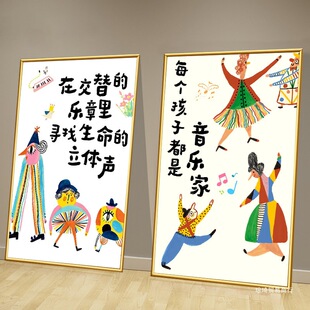 在交替的
乐章里
寻找生命的
立体声
每个孩子都是
音乐家